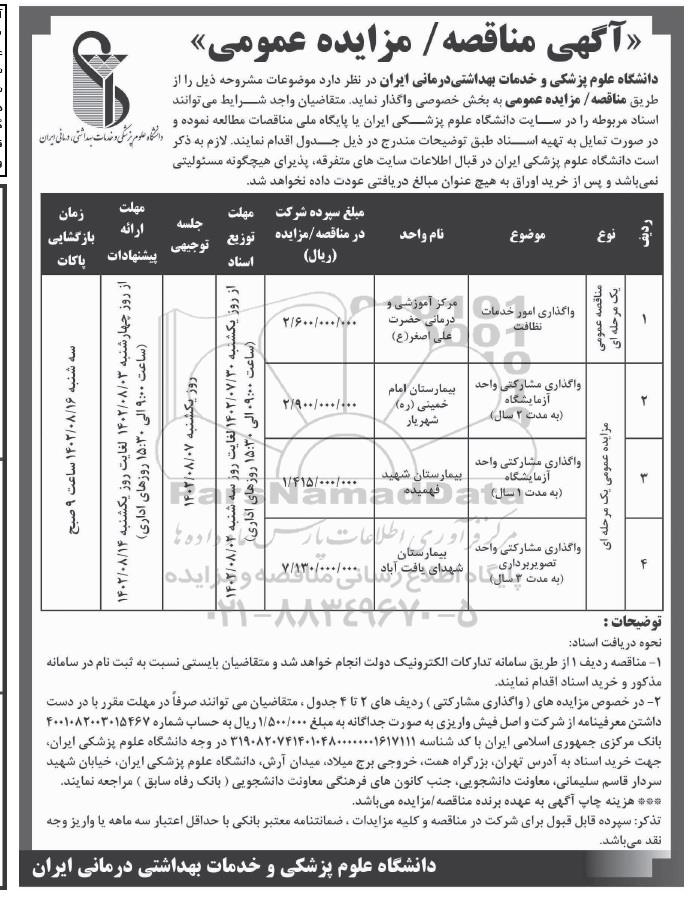 «آگهی مناقصه/ مزایده عمومی»
دانشگاه علوم پزشکی و خدمات بهداشتی درمانی ایران
دانشگاه علوم پزشکی و خدمات بهداشتی‌درمانی ایران در نظر دارد موضوعات مشروحه ذیل را از
طریق مناقصه/ مزایده عمومی به بخش خصوصی واگذار نماید. متقاضیان واجد شرایط می توانند
اسناد مربوطه را در سایت دانشگاه علوم پزشکی ایران یا پایگاه ملی مناقصات مطالعه نموده و
در صورت تمایل به تهیه اسناد طبق توضیحات مندرج در ذیل جدول اقدام نمایند. لازم به ذکر
است دانشگاه علوم پزشکی ایران در قبال اطلاعات سایت های متفرقه، پذیرای هیچگونه مسئولیتی
نمی‌باشد و پس از خرید اوراق به هیچ عنوان مبالغ دریافتی عودت داده نخواهد شد.
ردیف
نوع
موضوع
نام واحد
مبلغ سپرده شرکت
در مناقصه/مزایده
(ریال)
مهلت
توزیع
اسناد
جلسه
توجیهی
مهلت
ارائه
پیشنهادات
زمان
بازگشایی
پاکات
۱
مناقصه عمومی
یک مرحله ای
واگذاری امور خدمات
نظافت
مرکز آموزشی و
درمانی حضرت
علی اصغر(ع)
۲/۶۰۰/۰۰۰/۰۰۰
۲
مزایده عمومی یک مرحله ای
واگذاری مشارکتی واحد
آزمایشگاه
(به مدت ۲ سال)
بیمارستان امام
خمینی (ره)
شهریار
۲/۹۰۰/۰۰۰/۰۰۰
۳
واگذاری مشارکتی واحد
آزمایشگاه
(به مدت ۱ سال)
بیمارستان شهید
فهمیده
۱/۴۱۵/۰۰۰/۰۰۰
۴
واگذاری مشارکتی واحد
تصویربرداری
(به مدت ۳ سال)
بیمارستان
شهدای یافت آباد
۷/۱۳۰/۰۰۰/۰۰۰
از روز یکشنبه ۱۴۰۲/۰۷/۳۰ لغایت روز سه شنبه ۱۴۰۲/۰۸/۰۲
(ساعت ۰۹:۰۰ الی ۱۵:۳۰ روزهای اداری)
روز یکشنبه ۱۴۰۲/۰۸/۰۷
از روز چهارشنبه ۱۴۰۲/۰۸/۰۳ لغایت روز یکشنبه ۱۴۰۲/۰۸/۱۴
(ساعت ۹:۰۰ الی ۱۵:۳۰ روزهای اداری)
سه شنبه ۱۴۰۲/۰۸/۱۶ ساعت ۹ صبح
ParsNamadData
مرکز فرآوری اطلاعات پارس نماد داده ها
پایگاه اطلاع رسانی مناقصه و مزایده
۰۲۱-۸۸۳۴۹۶۷۰-۵
توضیحات :
نحوه دریافت اسناد:
۱- مناقصه ردیف ۱ از طریق سامانه تدارکات الکترونیک دولت انجام خواهد شد و متقاضیان بایستی نسبت به ثبت نام در سامانه
مذکور و خرید اسناد اقدام نمایند.
۲- در خصوص مزایده های ( واگذاری مشارکتی ) ردیف های ۲ تا ۴ جدول ، متقاضیان می توانند صرفاً در مهلت مقرر با در دست
داشتن معرفینامه از شرکت و اصل فیش واریزی به صورت جداگانه به مبلغ ۱/۵۰۰/۰۰۰ ریال به حساب شماره ۴۰۰۱۰۸۲۰۰۳۰۱۵۴۶۷
بانک مرکزی جمهوری اسلامی ایران با کد شناسه ۳۱۹۰۸۲۰۷۴۱۴۰۱۰۴۸۰۰۰۰۰۰۰۱۶۱۷۱۱۱ در وجه دانشگاه علوم پزشکی ایران،
جهت خرید اسناد به آدرس تهران، بزرگراه همت، خروجی برج میلاد، میدان آرش، دانشگاه علوم پزشکی ایران، خیابان شهید
سردار قاسم سلیمانی، معاونت دانشجویی، جنب کانون های فرهنگی معاونت دانشجویی ( بانک رفاه سابق ) مراجعه نمایند.
*** هزینه چاپ آگهی به عهده برنده مناقصه/مزایده می‌باشد.
تذکر: سپرده قابل قبول برای شرکت در مناقصه و کلیه مزایدات ، ضمانتنامه معتبر بانکی با حداقل اعتبار سه ماهه یا واریز وجه
نقد می‌باشد.
دانشگاه علوم پزشکی و خدمات بهداشتی درمانی ایران